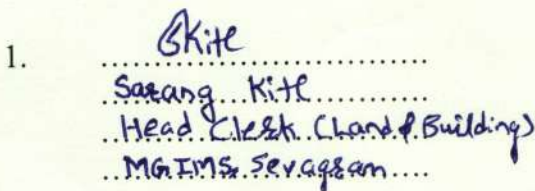 1. SKite
Sarang Kite
Head Clerk (Land & Building)
MGIMS, Sevagram